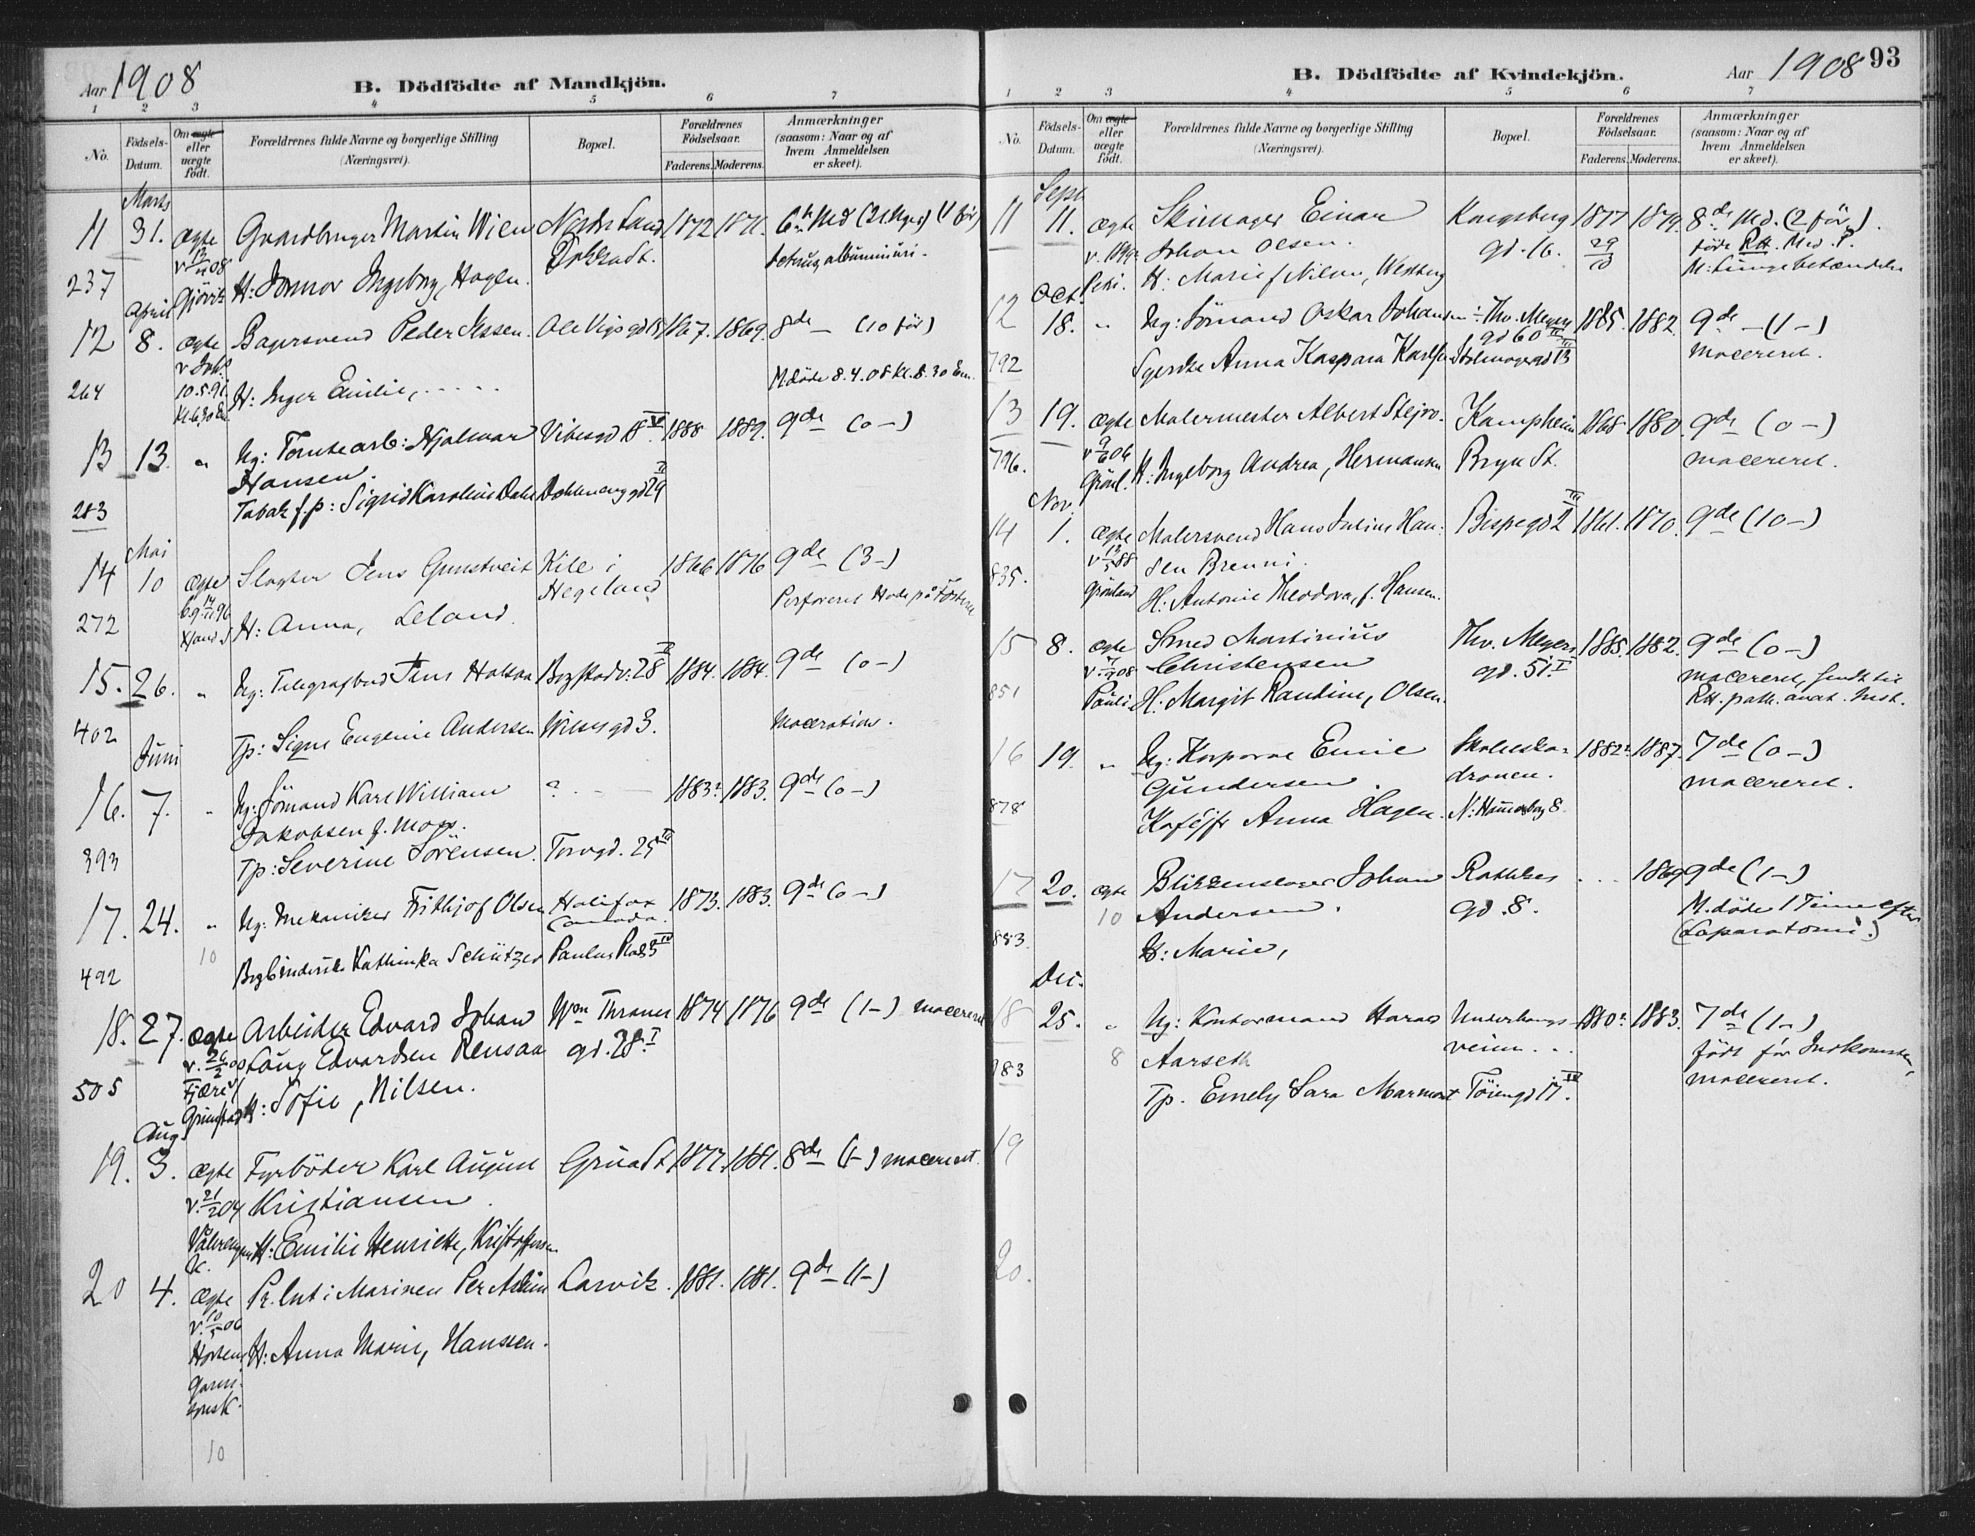 Aar 1908
B. Dödfödte af Mandkjön.
1 2 3 4 5 6 7
No.
Födsels-Datum.
Om ægte eller uægte født.
Forældrenes fulde Navne og borgerlige Stilling (Næringsvei).
Bopæl.
Forældrenes Födselsaar.
Faderens. Moderens.
Anmærkninger (saasom: Naar og af hvem Anmeldelsen er skeet).
Marts
11 31. ægte Gaardbruger Martin Wien Nordre Land 1872 1871. 6te Md (1 før)
Gjøvik Dokka
237 H: Ingeborg, Hagen.
April
12 8. ægte Bagersvend Peder Issen. Ole Vigs gd 1867. 1869. 8de — (10 før)
10.5.91
264 H: Inger Emilie, M. døde 8.4.08 Kl. 8.30 Em.
13 13. " Ug: Tomtearb: Hjalmar Vibesgd 1888 1889. 9de (0 —)
Hansen.
283 Tabak f.p: Sigrid Karoline Dahl
Mai
14 10 ægte Slagter Jens Gunstveit Kile i 1866 1876 9de (3 —)
Hegeland
272 H: Anna, Leland. Perforeret Hode på Fosteret
15. 26. " Ug: Telegrafbud Jens 28 1884. 1884. 9de (0 —)
402 Tp: Signe Eugenie Andersen Wilsesgd 3. Maceration.
Juni
16. 7. " Ug: Sömand Karl William ? 1883? 1883. 9de (0 —)
Jakobsen f. Moss.
393 Tp: Severine Sörensen. Torvgd. 25
17. 24. " Ug: Mekaniker Frithjof Olsen Halifax 1873. 1883. 9de (0 —)
Canada.
10
492 Kathinka Schützer Paulus Plads
18. 27. ægte Arbeider Edvard Johan Wm Thranes 1874 1876 9de (1 —) macereret
Lang Edvardsen Rensaa gd. 28 I
505 Fjære v/ Grimstad H: Sofie, Nilsen.
Aug
19. 3. ægte Fyrböder Karl August Grua St. 1877. 1881. 8de (1 —) macereret.
v. 21/2 04 Kristiansen.
Vålerengen K. H: Emilie Henriette, Kristoffersen
20 4. ægte Pr. Lnt i Marinen Per Larvik. 1881. 1881. 9de (1 —)
v. 10/5 06
Horten H: Anna Marie, Hanssen.
Garni-
10
1908 93
B. Dödfödte af Kvindekjön.
Aar
1 2 3 4 5 6 7
No.
Födsels-Datum.
Om ægte eller uægte födt.
Forældrenes fulde Navne og borgerlige Stilling (Næringsvei).
Bopæl.
Forældrenes Födselsaar.
Faderens. Moderens.
Anmærkninger (saasom: Naar og af hvem Anmeldelsen er skeet).
Sept
11 11. ægte Skomager Einar Kongsberg 1877 1879. 8de Md. (2 før).
Johan Olsen. gd. 16. 29/10 døde RH. Med. P.
Petri. H: Marie f Nilsen, Westberg M: Lungebetændelse
Oct.
12 18. " Ug: Sömand Oskar Johansen Thv. Meyers 1885. 1882. 9de — (1 —)
gd 60 macereret.
792 Syerske Anna Kaspara Karlsen 13
13 19. ægte Malermester Albert Kampheim 1868. 1880. 9de (0 —)
796. Grönl. H: Ingeborg Andrea, Hermansen Bryn St. macereret.
Nov.
14 1. ægte Malersvend Hans Julius Han- Bispegd 2 1861. 1870. 9de (10 —)
sen Brenni.
835. Grönland H: Antonie Theodora, f. Hansen.
15 8. ægte Smed Martinius Thv. Meyers 1885. 1882. 9de (0 —)
Christensen gd. 51. I macereret, sendt til
851 Pauli H: Margit Pauline, Olsen. RH. path. anat. Inst.
16 19. " Ug: Korporal Emil 1882? 1887. 7de (0 —)
Gundersen dronen. macereret.
878 Anna Hagen. N: Hammersborg 8.
17 20. ægte Blikkenslager Johan Rathkes 1869 9de (1 —)
10 Andersen. gd. 8. M. døde 1 Time efter
883. H: Marie, (Laparatomi.)
Dec.
18 25. " Ug: Kontormand Harald Underhaugs- 1880? 1883. 7de (1 —)
8 Aarseth veien . . født før Indkomsten,
983 Tp. Emely Sara Töiengd 17. macereret.
19
20.